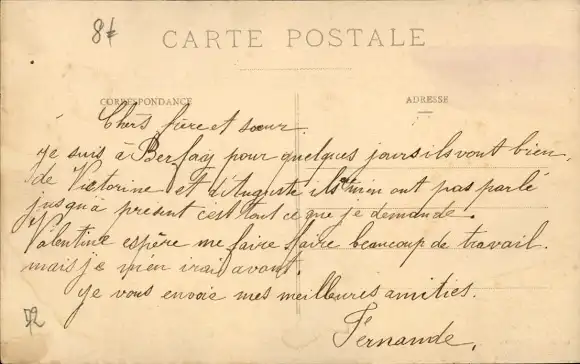 8f
CARTE POSTALE
CORRESPONDANCE
ADRESSE
Chers frère et sœur
je suis à Berfay pour quelques jours ils vont bien,
de Victorine et d'Auguste ils m'en ont pas parlé
jusqu'à présent c'est tout ce que je demande.
Valentine espère me faire faire beaucoup de travail.
mais je m'en irai avant.
je vous envoie mes meilleures amitiés.
Fernande,